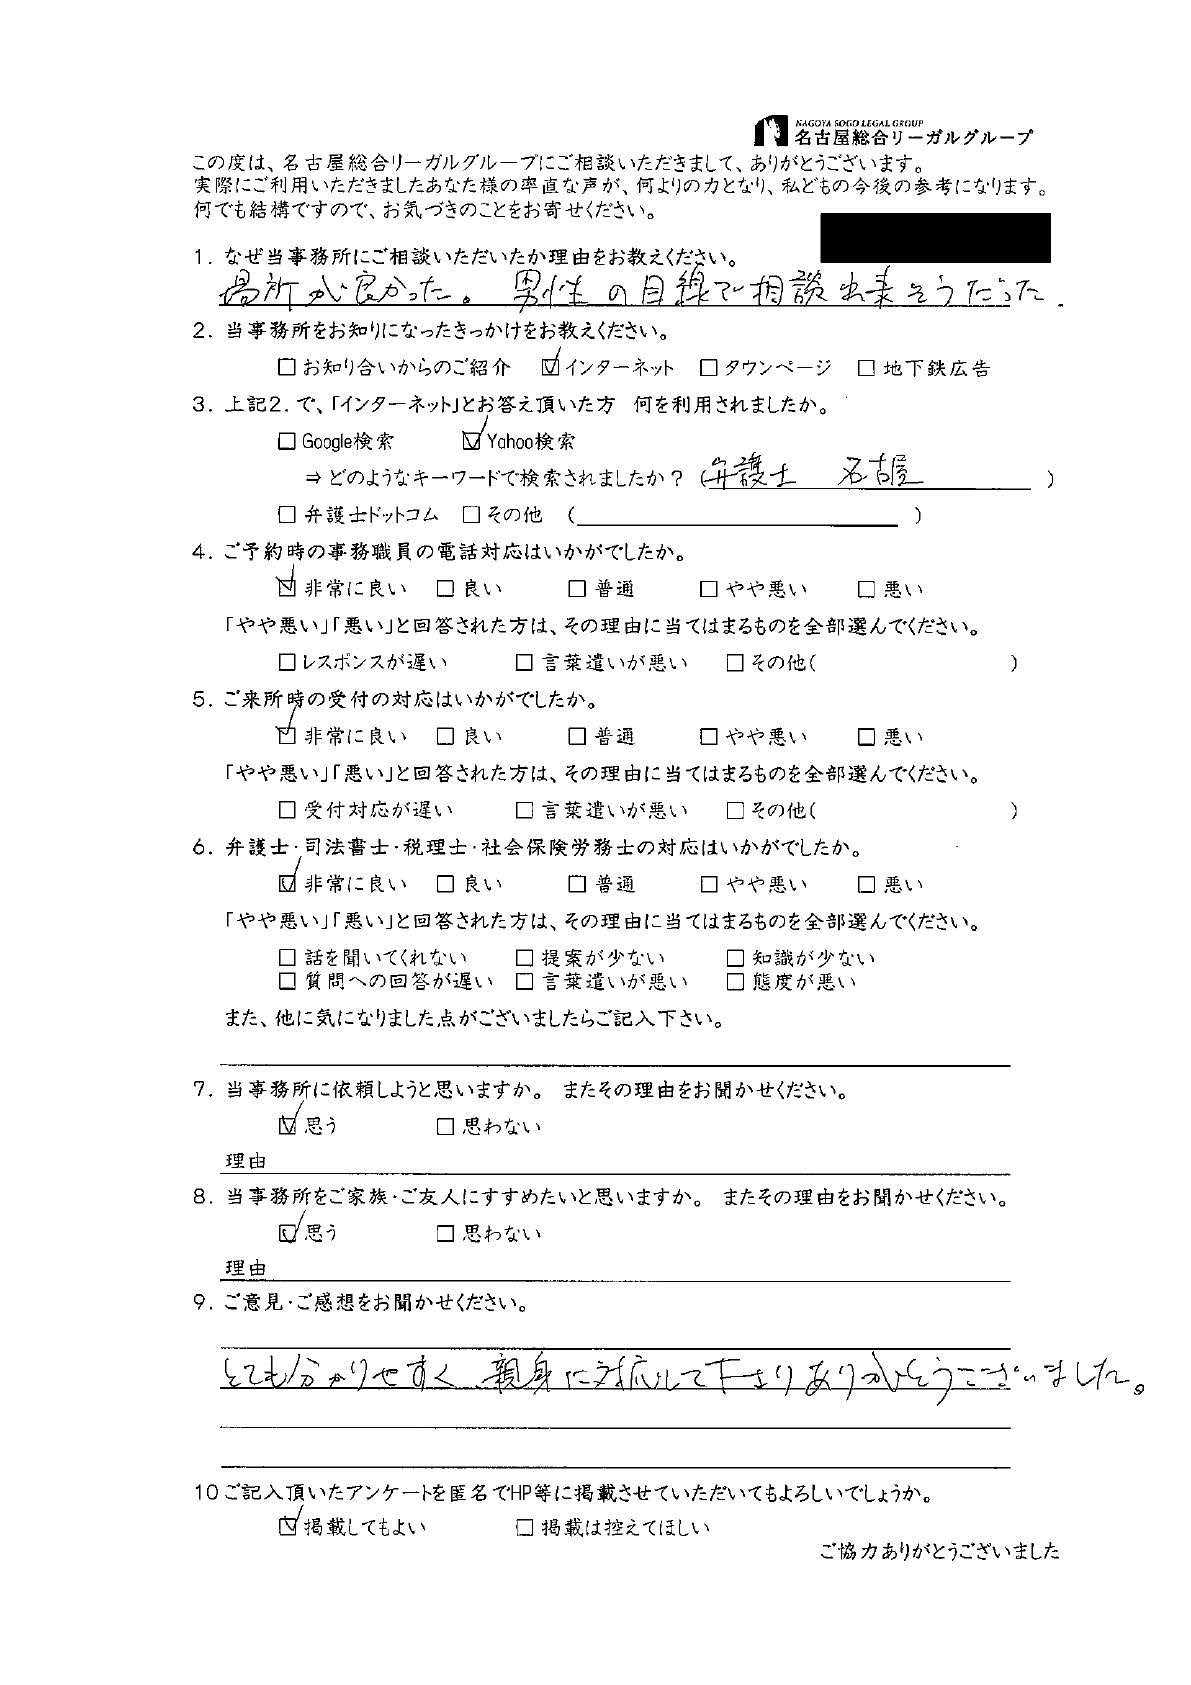 NAGOYA SOGO LEGAL GROUP
名古屋総合リーガルグループ
この度は、名古屋総合リーガルグループにご相談いただきまして、ありがとうございます。
実際にご利用いただきましたあなた様の率直な声が、何よりの力となり、私どもの今後の参考になります。
何でも結構ですので、お気づきのことをお寄せください。
1. なぜ当事務所にご相談いただいたか理由をお教えください。
場所が良かった。男性の目線で相談出来そうだった.
2. 当事務所をお知りになったきっかけをお教えください。
□お知り合いからのご紹介 ☑インターネット □タウンページ □地下鉄広告
3. 上記2.で、「インターネット」とお答え頂いた方 何を利用されましたか。
□Google検索 ☑Yahoo検索
⇒どのようなキーワードで検索されましたか？(弁護士 名古屋 )
□弁護士ドットコム □その他 ( )
4. ご予約時の事務職員の電話対応はいかがでしたか。
☑非常に良い □良い □普通 □やや悪い □悪い
「やや悪い」「悪い」と回答された方は、その理由に当てはまるものを全部選んでください。
□レスポンスが遅い □言葉遣いが悪い □その他( )
5. ご来所時の受付の対応はいかがでしたか。
☑非常に良い □良い □普通 □やや悪い □悪い
「やや悪い」「悪い」と回答された方は、その理由に当てはまるものを全部選んでください。
□受付対応が遅い □言葉遣いが悪い □その他( )
6. 弁護士・司法書士・税理士・社会保険労務士の対応はいかがでしたか。
☑非常に良い □良い □普通 □やや悪い □悪い
「やや悪い」「悪い」と回答された方は、その理由に当てはまるものを全部選んでください。
□話を聞いてくれない □提案が少ない □知識が少ない
□質問への回答が遅い □言葉遣いが悪い □態度が悪い
また、他に気になりました点がございましたらご記入下さい。
7. 当事務所に依頼しようと思いますか。 またその理由をお聞かせください。
☑思う □思わない
理由
8. 当事務所をご家族・ご友人にすすめたいと思いますか。 またその理由をお聞かせください。
☑思う □思わない
理由
9. ご意見・ご感想をお聞かせください。
とても分かりやすく、親身に対応して下さりありがとうございました。
10ご記入頂いたアンケートを匿名でHP等に掲載させていただいてもよろしいでしょうか。
☑掲載してもよい □掲載は控えてほしい
ご協力ありがとうございました